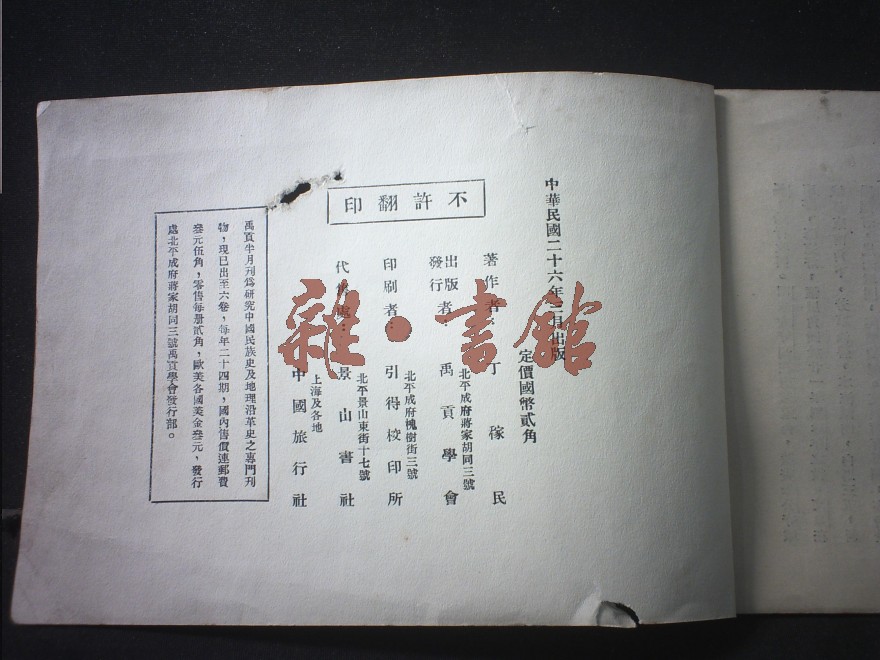 中華民國二十六年三月出版
定價國幣貳角
不許翻印
著作者：丁稼民
出版發行者：禹貢學會
北平成府蔣家胡同三號
印刷者：引得校印所
北平成府槐樹街三號
代售處：景山書社
北平景山東街十七號
中國旅行社
上海及各地
禹貢半月刊爲研究中國民族史及地理沿革史之專門刊
物，現已出至六卷，每年二十四期，國內售價連郵費
叄元伍角，零售每册貳角，歐美各國美金叄元，發行
處北平成府蔣家胡同三號禹貢學會發行部。
雜·書館